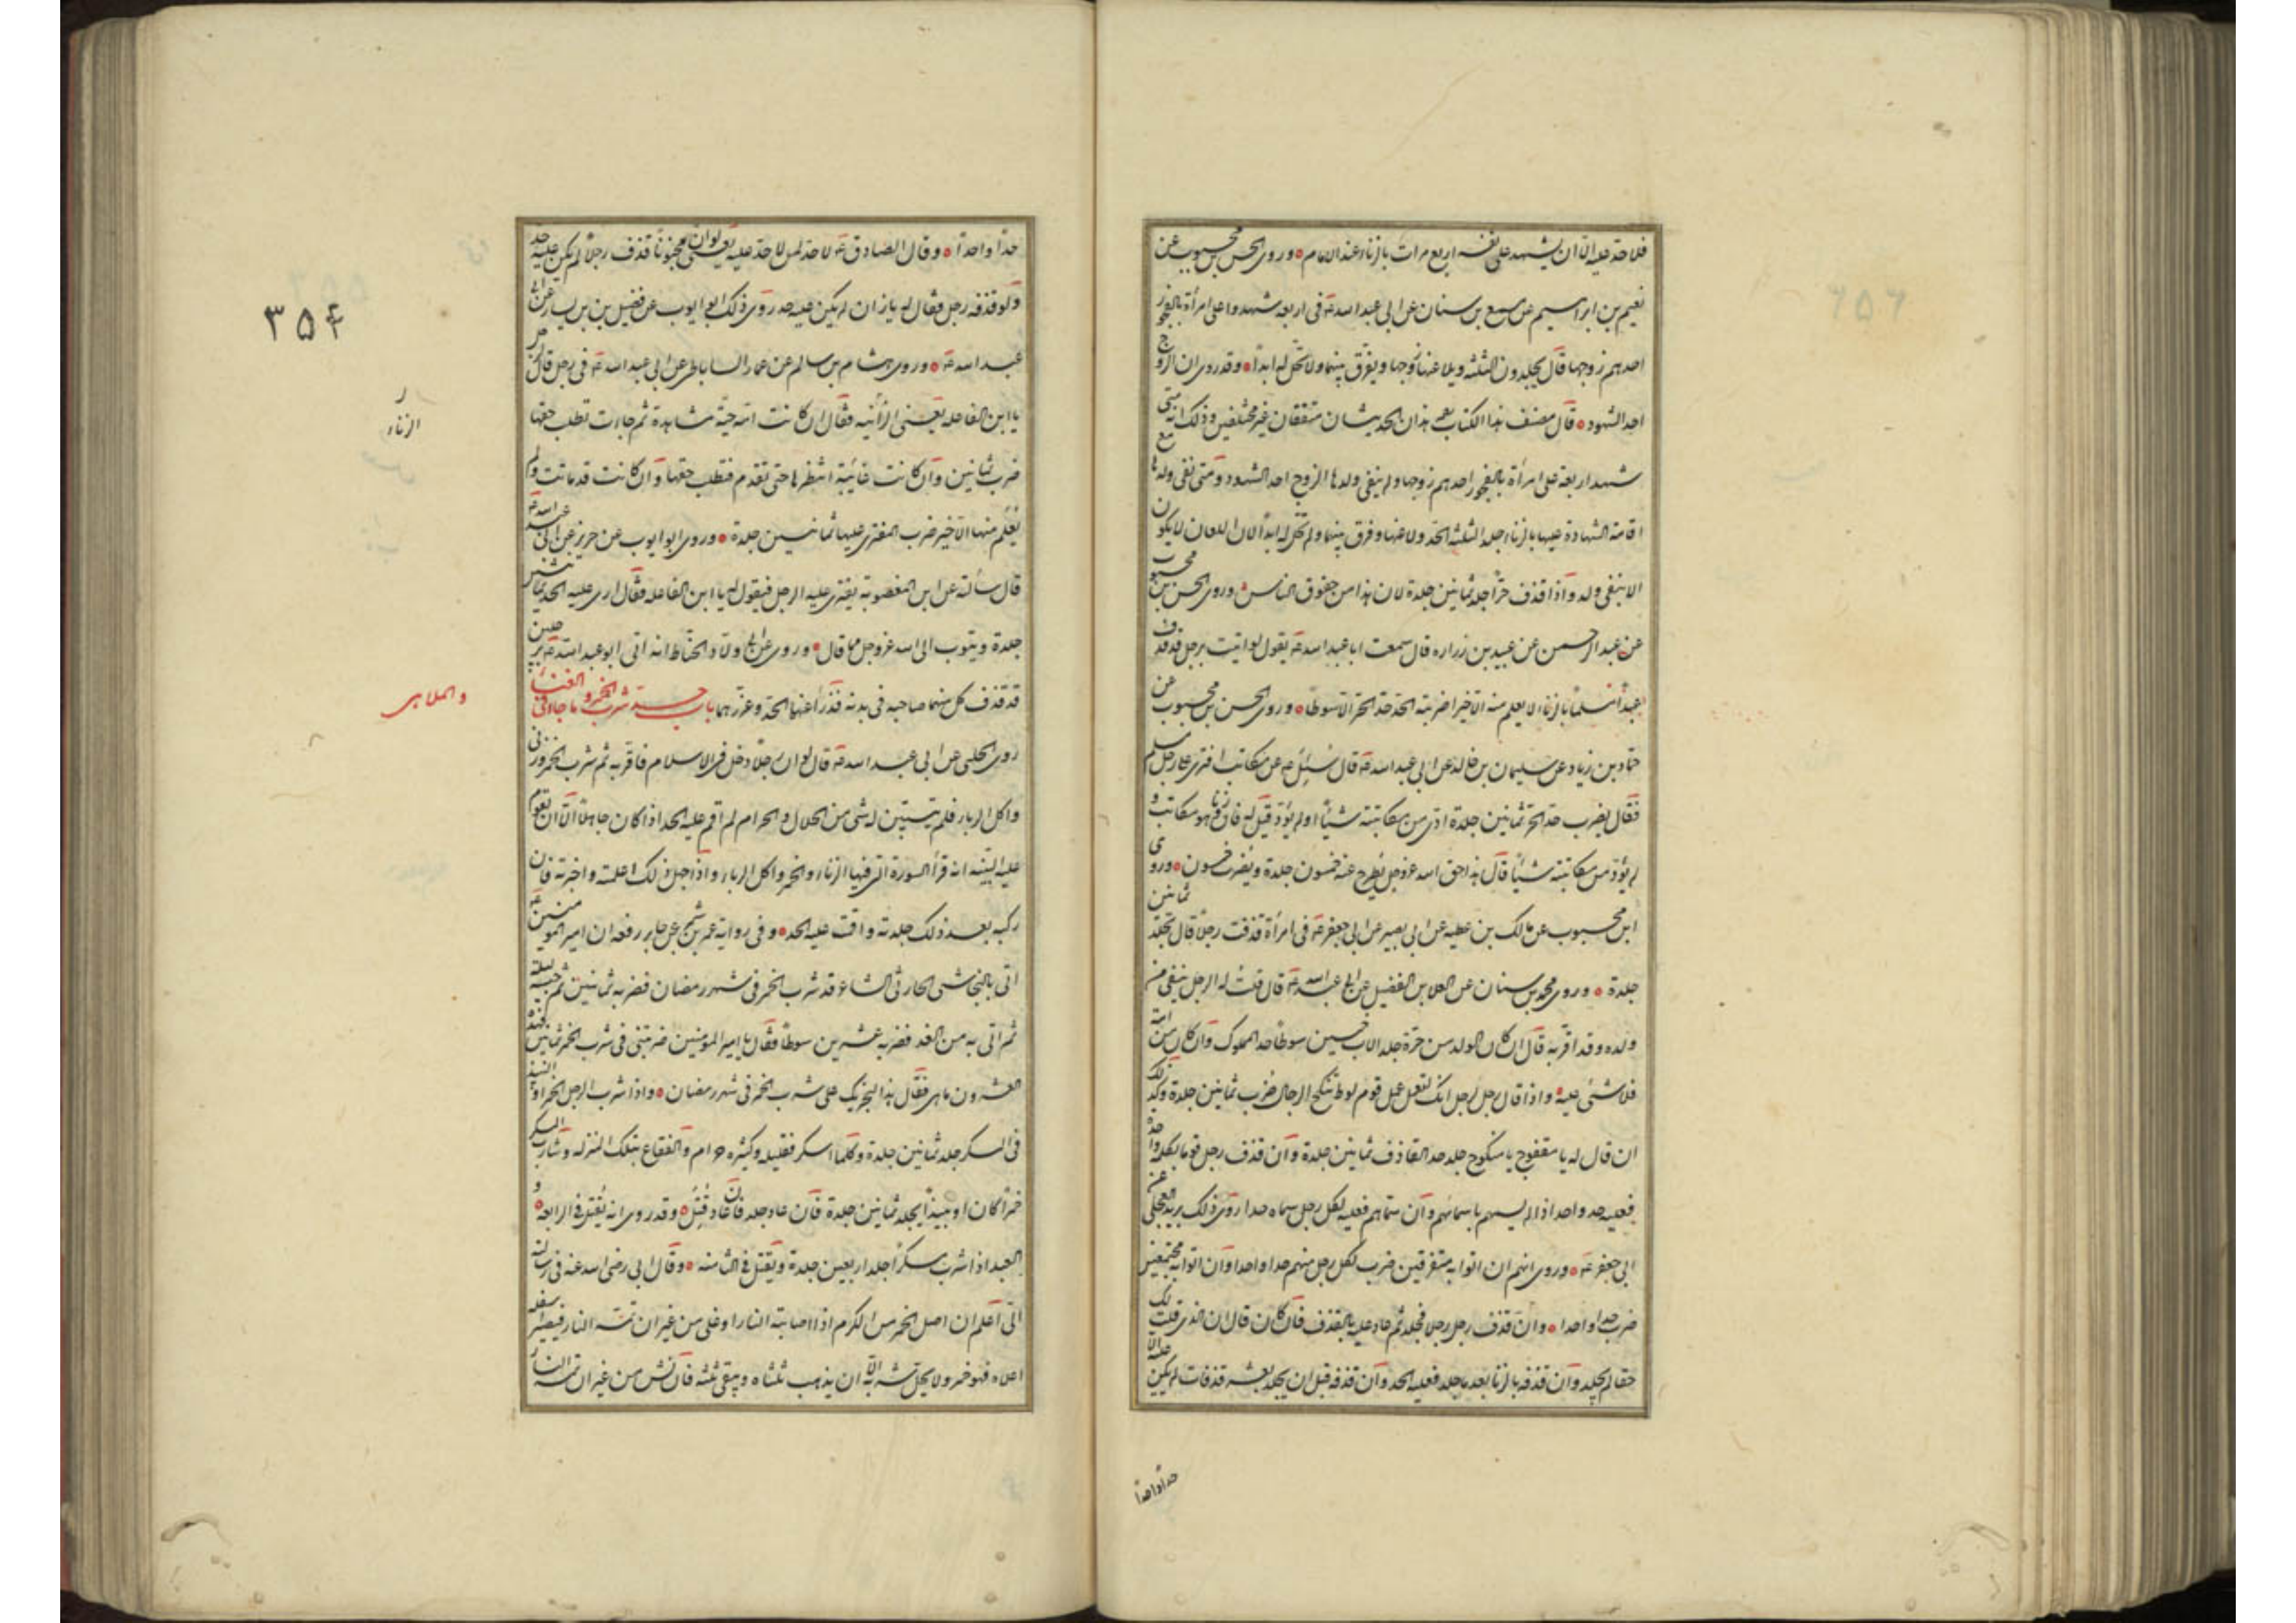 فلا حد عليه الا ان يشهد على نفسه اربع مرات بالزناء عند الامام وروى الحسن بن محبوب عن
نعيم بن ابراهيم عن مسمع بن سنان عن ابى عبد الله ع فى اربعه شهدوا على امرأة بالفجور
احدهم زوجها قال يجلدون الثلثه ويلاعنها زوجها ويفرق بينهما ولا تحل له ابدا وقد روى ان الزوج
احد الشهود قال مصنف هذا الكتاب هذان الحديثان متفقان غير مختلفين وذلك انه متى
شهد اربعة على امرأة بالفجور احدهم زوجها ولم ينفى ولدها الزوج احد الشهود ومتى نفى ولدها مع
اقامة الشهادة عليها بالزناء جلد الثلثه الحد ولاعنها وفرق بينهما ولم تحل له ابدا لان اللعان لا يكون
الا بنفى ولد واذا قذف حرا جلد ثمانين جلدة لان هذا من حقوق الناس وروى الحسن بن محبوب
عن عبد الرحمن عن عبيد بن زراره قال سمعت ابا عبد الله ع يقول لو اتيت برجل قذف
عبدا مسلما بالزنا لا يعلم منه الا خيرا ضربته الحد حد الحر الا سوطا وروى الحسن بن محبوب عن
حماد بن زياد عن سليمان بن خالد عن ابى عبد الله ع قال سئل ع عن مكاتب افترى على رجل مسلم
فقال يضرب حد الحر ثمانين جلدة ادى من مكاتبته شيئا او لم يؤد قيل له فان زنا وهو مكاتب و
لم يؤد من مكاتبته شيئا قال هذا حق الله عز وجل يطرح عنه خمسون جلدة ويضرب خمسون وروى
ابن محبوب عن مالك بن عطيه عن ابى بصير عن ابى جعفر ع فى امرأة قذفت رجلا قال تجلد ثمانين
جلدة وروى محمد بن سنان عن العلا بن الفضيل عن ابى عبد الله ع قال قلت له الرجل ينتفى من
ولده وقد اقر به قال ان كان الولد من حرة جلد الاب خمسين سوطا حد المملوك وان كان من امة
فلا شئ عليه واذا قال رجل لرجل انك لتعمل عمل قوم لوط تنكح الرجال ضرب ثمانين جلدة وكذلك
ان قال له يا معفوج يا منكوح جلد حد القاذف ثمانين جلدة وان قذف رجل قوما بكلمة واحدة
فعليه حد واحد اذا لم يسمهم باسمائهم وان سماهم فعليه لكل رجل سماه حدا روى ذلك بريد العجلى عن
ابى جعفر ع وروى انهم ان اتوا به متفرقين ضرب لكل رجل منهم حدا واحدا وان اتوا به مجتمعين
ضرب حدا واحدا وان قذف رجل رجلا فجلد ثم عاد عليه بالقذف فان كان قال ان الذى قلت لك
حقا لم يجلد وان قذفه بالزنا بعد ما جلد فعليه الحد وان قذفه قبل ان يجلد بعشر قذفات لم يكن عليه الا
حدا واحدا
حدا واحدا وقال الصادق ع لا حد لمن لا حد عليه يعنى لو ان مجنونا قذف رجلا لم يكن عليه حد
ولو قذفه رجل فقال له يا زان لم يكن عليه حد روى ذلك ابو ايوب عن فضيل بن يسار عن ابى
عبد الله ع وروى هشام بن سالم عن عمار الساباطى عن ابى عبد الله ع فى رجل قال لرجل
يا ابن الفاعله يعنى الزانيه فقال ان كانت امه حية شاهدة ثم جاءت تطلب حقها
ضرب ثمانين وان كانت غائبة انتظر بها حتى تقدم فتطلب حقها وان كانت قد ماتت ولم
يعلم منها الا خير ضرب المفترى عليها ثمانين جلدة وروى ابو ايوب عن حريز عن ابى عبد الله ع
قال سألته عن ابن المغصوبه يفترى عليه الرجل فيقول له يا ابن الفاعله فقال ارى عليه الحد ثمانين
جلدة ويتوب الى الله عز وجل مما قال وروى عن ابى ولاد الحناط انه اتى ابو عبد الله ع برجلين
قد قذف كل منهما صاحبه فى بدنه فدرأ عنهما الحد وعزرهما باب حد شرب الخمر وما جاء فى الغناء
والملاهى
روى الحلبى عن ابى عبد الله ع قال لو ان رجلا دخل فى الاسلام فاقر به ثم شرب الخمر وزنى
واكل الربا فلم يتبين له شئ من الحلال والحرام لم اقم عليه الحد اذا كان جاهلا الا ان تقوم
عليه البينه انه قرأ السورة التى فيها الزناء والخمر واكل الربا واذا جهل ذلك اعلمته واخبرته فان
ركبه بعد ذلك جلدته واقمت عليه الحد وفى رواية عمر بن شمر عن جابر رفعه ان امير المؤمنين ع
اتى بالنجاشى الحارثى الشاعر قد شرب الخمر فى شهر رمضان فضربه ثمانين ثم حبسه ليلة
ثم اتى به من الغد فضربه عشرين سوطا فقال يا امير المؤمنين ضربتنى فى شرب الخمر ثمانين فهذه
العشرون ما هى فقال هذا لتجريك على شرب الخمر فى شهر رمضان واذا شرب الرجل الخمر او النبيذ
فى السكر جلد ثمانين جلدة وكلما اسكر فقليله وكثيره حرام والفقاع بتلك المنزله وشارب المسكر
خمرا كان او نبيذا يجلد ثمانين جلدة فان عاد جلد فان عاد قتل وقد روى انه يقتل فى الرابعه و
العبد اذا شرب مسكرا جلد اربعين جلدة ويقتل فى الثامنه وقال ابى رضى الله عنه فى رسالته
الى اعلم ان اصل الخمر من الكرم اذا اصابته النار او غلى من غير ان تمسه النار فيصير اسفله
اعلاه فهو خمر ولا يحل شربه الا ان يذهب ثلثاه ويبقى ثلثه فان نش من غير ان تمسه النار
٣٥٤
الزناء